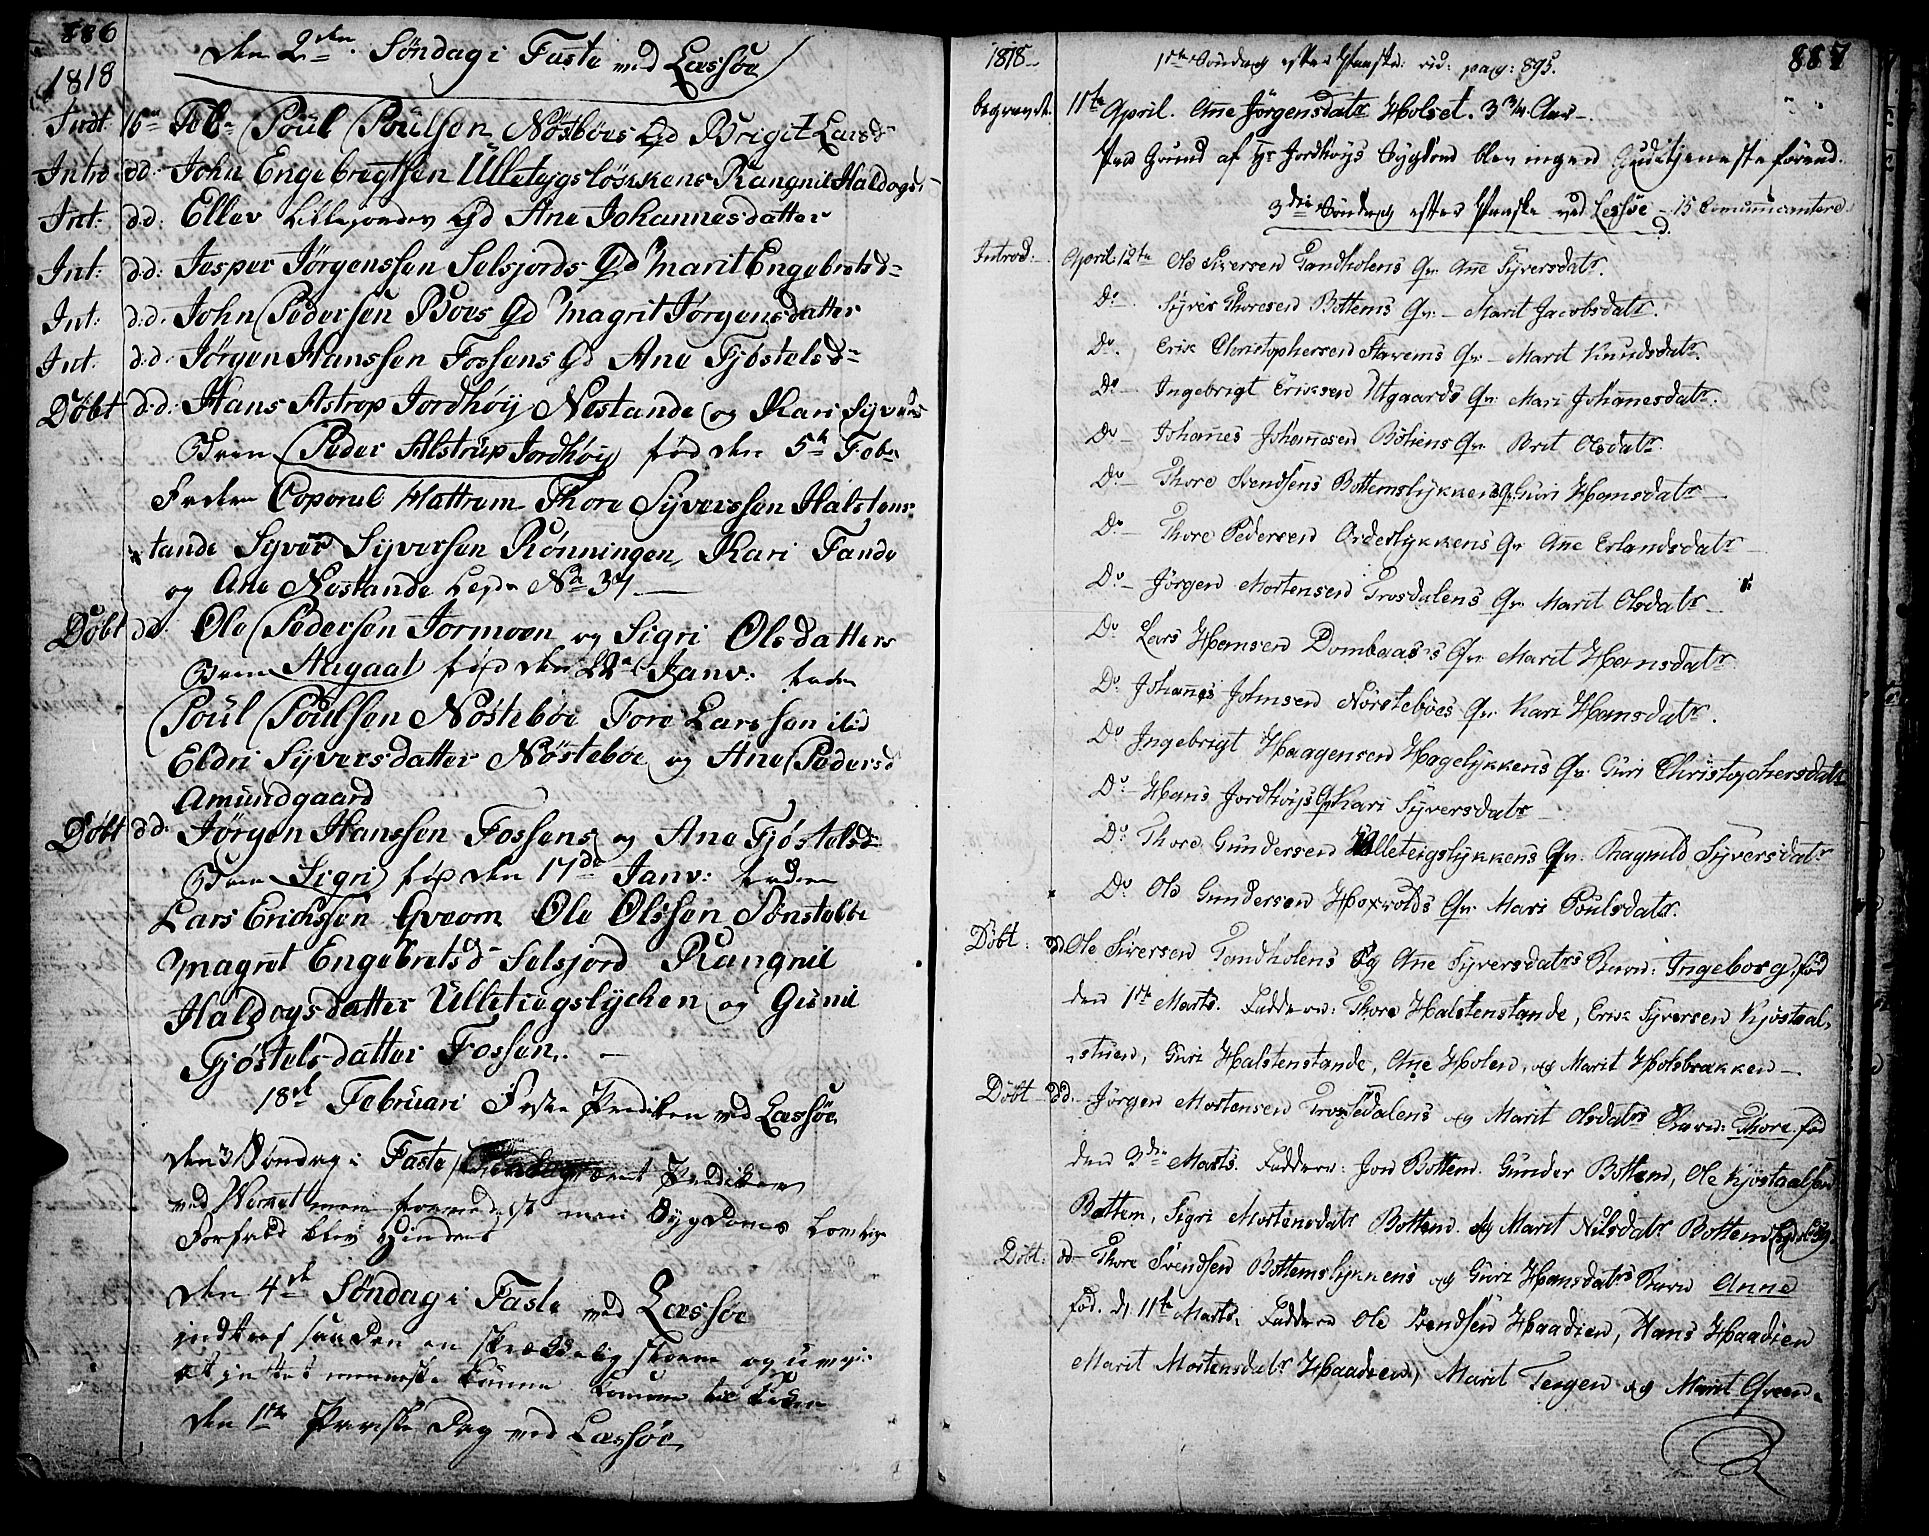 886
den 2den Söndag i Faste ved Læssöe
1818
Indt: 15de Feb. Poul Poulsen Nöstböes Qd Brigit Larsd
Intro dd: John Engebregtsen Ulleteigslökkens Rangnil Haldogsd
Int: d:d: Ellev Lillejorden Qd Ane Johannesdatter
Int: dd: Jesper Jörgenssen Selsjords Qd Marit Engebretsd
Int: d:d: John Pedersen Boes Qd Magrit Jörgensdatter
Int. d:d: Jörgen Hanssen Fossens Qd Ane Fjöstelsd
Döbt d:d: Hans Astrop Jordhöy Nestande og Kari Syvers
Barn Peder Alstrup Jordhöy föd den 5te Feb
Fadder Coporal Hattrem Thore Syverssen Halstens
tande Syver Syversen Rönningen, Kari Tande
og Ane Nestande No 37
Döbt dd: Ole Pedersen Jormoen og Sigri Olsdatters
Barn Aagaat föd den 22 Janv:
Poul Poulsen Nösteböe Tore Larssen ibid
Eldri Syversdatter Nösteböe og Ane Pedersd
Amundgaard
Döbt dd: Jörgen Hanssen Fossens og Ane Fjöstelsd
Barn Sigri föd den 17de Janv:
Lars Erichsen Qveom Ole Olssen Sönstebö
Magnet Engebretsd Selsjord Rangnil
Haldogsdatter Ulleteigslychen og Gunil
Fjöstelsdatter Fossen. —
18de Februari Faste Prediken ved Læssöe
den 3 Söndag i Faste Prediken
ved men formedelst min Sygdoms
Forfald blev
den 4de Söndag i Faste ved Læssöe
indtraf saadan en skrækkelig storm og
at intet menneske kunne komme til Kirken
den 1ste Paaske dag ved Læssöe
1818 1ste Söndag efter Paaske: vid: pag: 895. 887
begravet. 11te April. Ane Jörgensdatr Holset. 3 3/4 Aar —
Paa Grund af Hr Jordhöys Sygdom blev ingen Gudstjeneste förend.
3die Söndag efter Paaske ved Lessöe — 15 Comunicantere
Introd: April 12te Ole Siversen Tandholens Qv. Ane Syversdatr.
Do — Syver Thoresen Bottems Qv. — Marit Jacobsdatr.
Do. Erik Christophersen Stavems Qv — Marit Knudsdatr.
Do — Ingebrigt Eriksen Utgaards Qv. Mari Johanesdatr.
Do — Johanes Johannesen Böhens Qv. Brit Olsdatr.
Do — Thore Svendsens Bottemslykkens Qv. Guri Hansdatr —
Do — Thore Pedersen Ordeslykkens Qv Ane Erlandsdatr —
Do — Jörgen Mortensen Trosdalens Qv. Marit Olsdatr —
Do Lars Hansen Dombaas's Qv. Marit Hansdatr
Do. Johannes Johnsen Nörsteböes Qv. Kari Hansdatr.
Do Ingebrigt Haagensen Hagelykkens Qv. Guri Christophersdatr
Do — Hans Jordhöys Qv Kari Syversdatr —
Do Thore Gundersen Ulleteigslykkens Qv. Ragnild Syversdatr
Do Ole Gundersen Hoxvolds Qv. Mari Poulsdatr.
Döbt: dd. Ole Siversen Tandholens og Ane Syversdatrs Barn: Ingeborg, föd
den 1ste Marts. Faddere: Thore Halstenstande, Erik Syversen Kjöstaal-
stuen, Guri Halstenstande, Ane Holen, og Marit Holsbrækken —
Döbt dd. — Jörgen Mortensen Trosdalens og Marit Olsdatrs Barn: Thore föd
den 3die Marts. Faddere: Jon Bottem. Gunder Bottem, Ole Kjöstaalsen
Bottem, Sigri Mortensdatr Bottem. og Marit Nilsdatr Bottem
Döbt: dd — Thore Svendsen Bottemslykkens og Guri Hansdatrs Barn Anne
föd. d. 11te Marts. Faddere Ole Svendsen Haadien, Hans Haadien
Marit Mortensdatr Haadien, Marit Teigen og Marit Qveen.